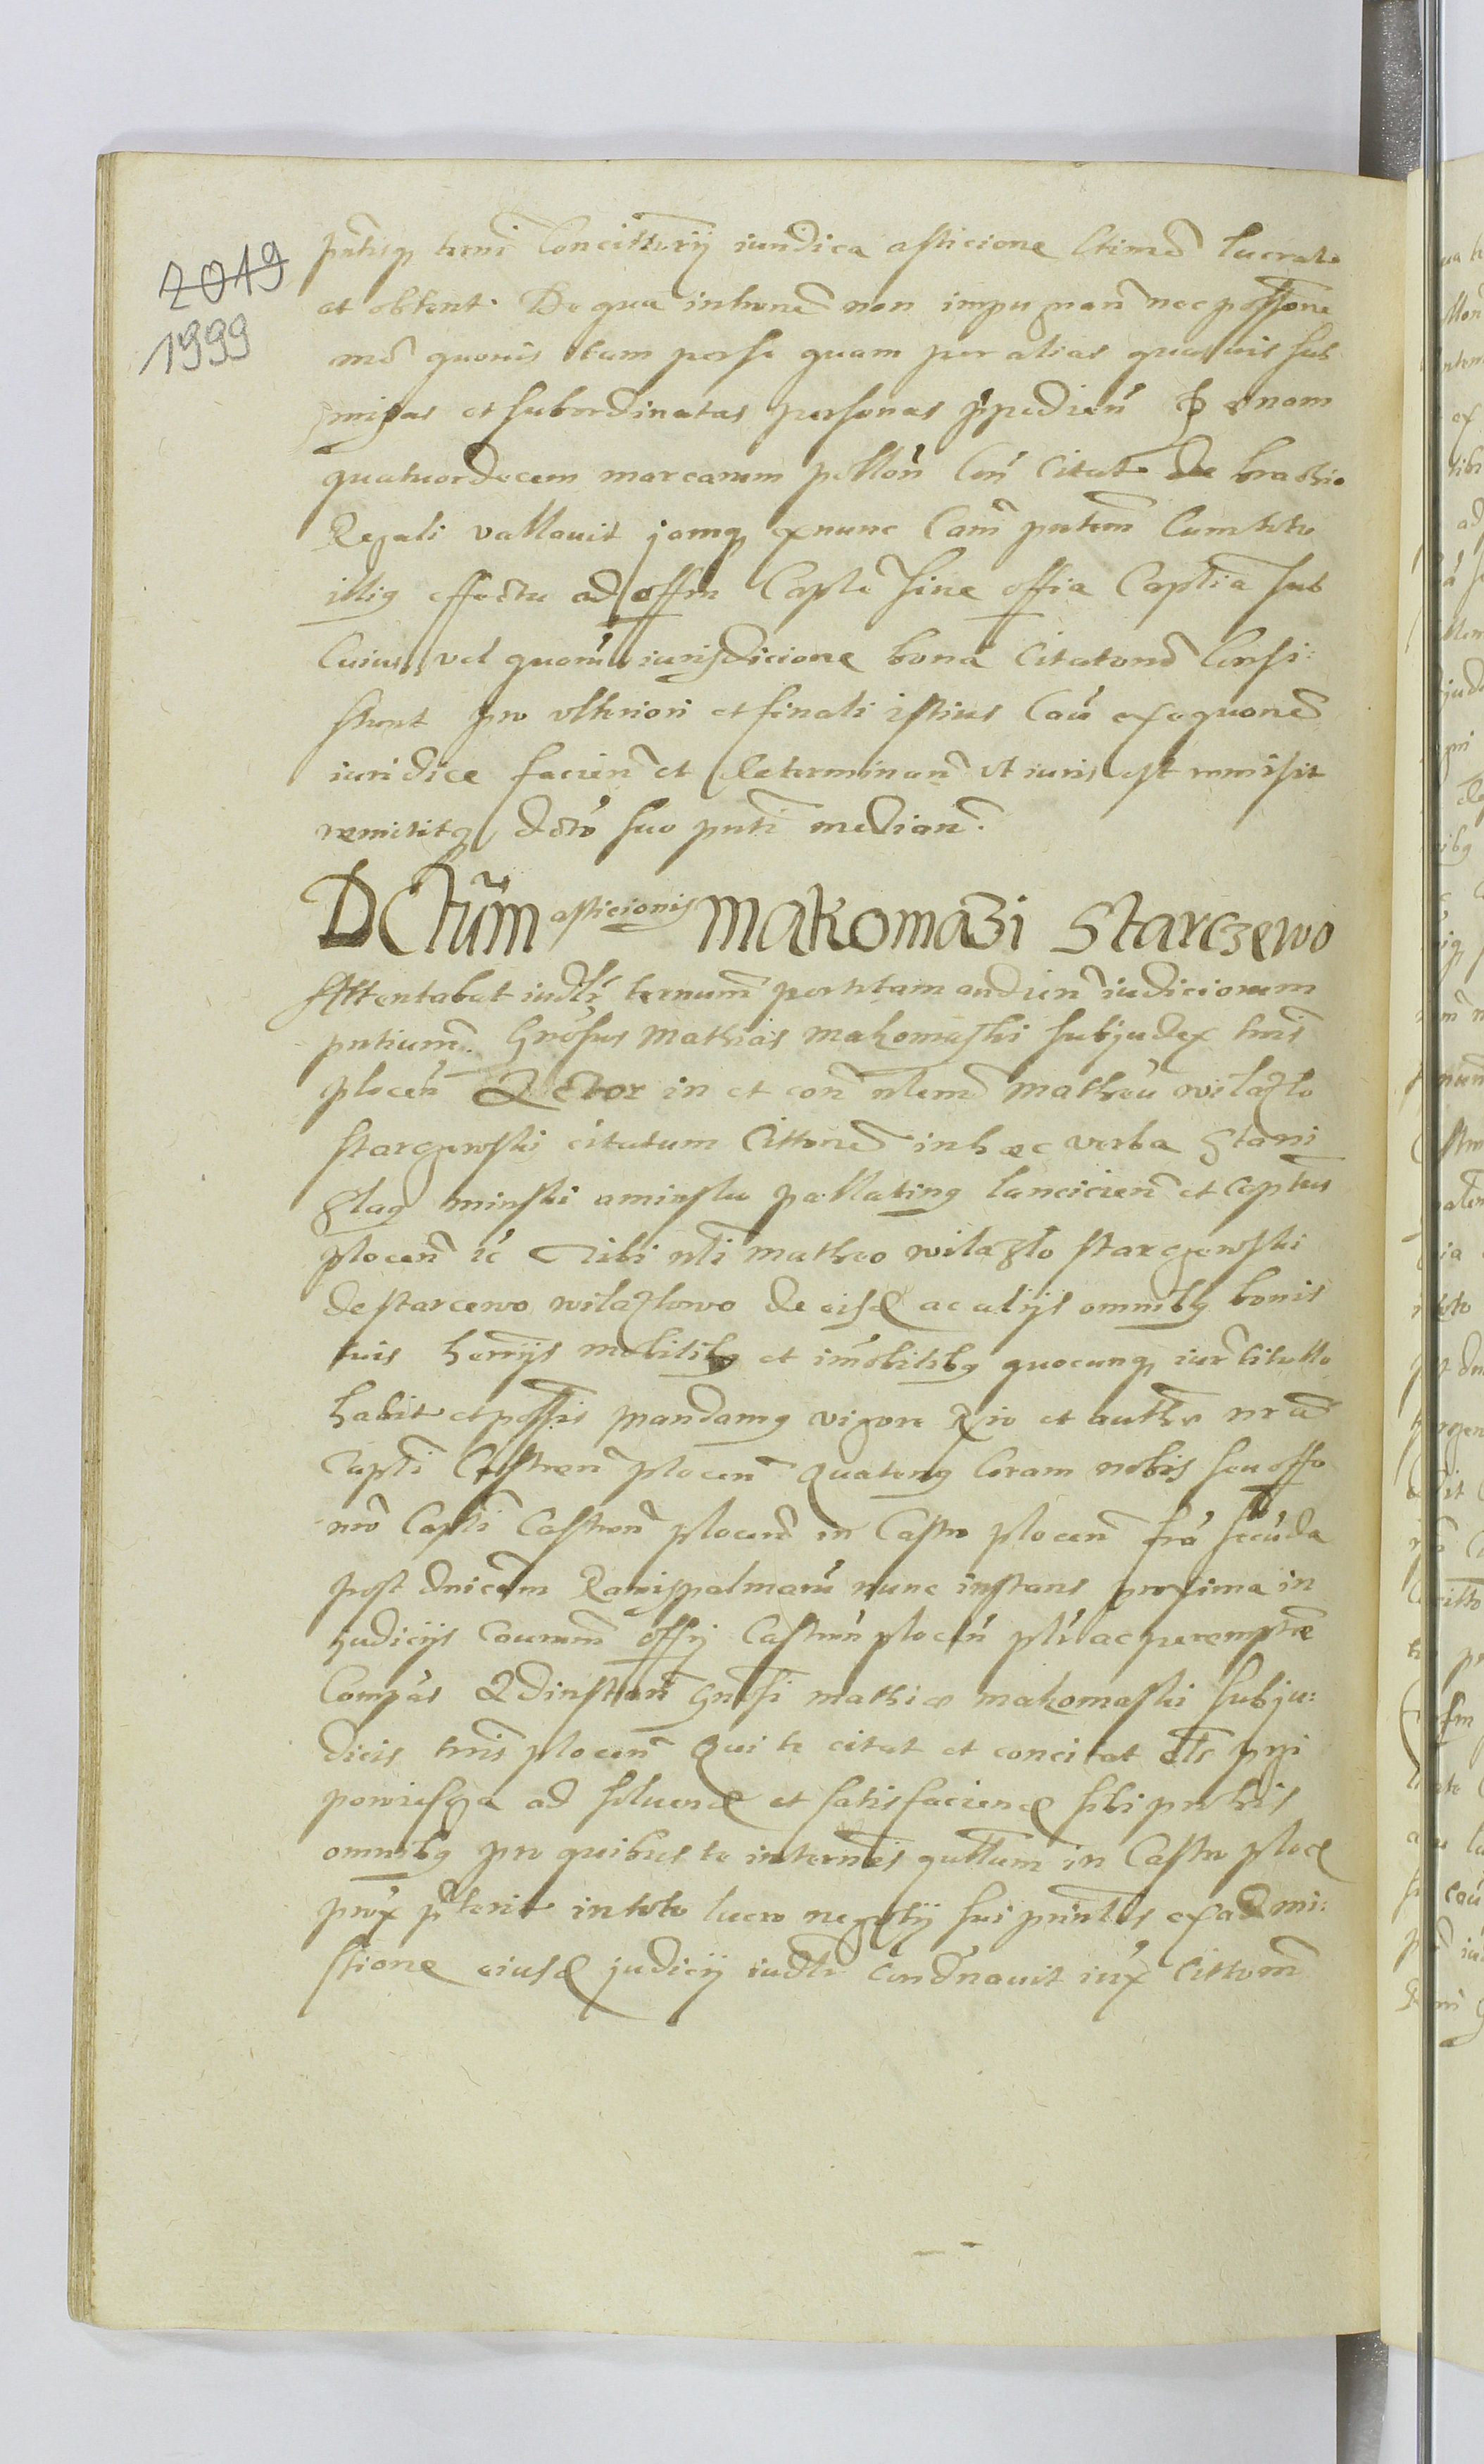 2019
1999
termi Concitterij iuridica asticione lucrate
et obtent. De qua non impugnan nec possione
quovis tam per se quam per alias quasvis sub
missas et subordinatas personas
quatuordecem marcarum pollon Citat de brachio
Regali vallavit jamq exnunc Cam pntem Cum toto
illiq effectu ad offm Capla sine offia Captia sub
Cuius vel quorum iurisdicione bona Citatond Consi:
stunt pro ulteriori et finali istius Cau exequoned
iuridice facien et determinan ut iuris est remisit
remititq dcto suo pnti median.
Dctum asticionis Makomazi Starczewo
Attentabat iudlr termum per totam audien iudiciorum
pntium. Gnosus Mathias Makomaski subjudex tnis
plocen Actor in et con nlem Matheu wilazlo
starczewski citatum Cittoned in hæc verba Stani
slaq minski aminsko pallatinq lancicien et Captus
plocen Tibi nli Matheo wilazlo starczewski
de starcewo wilazlowo de eisd ac alijs omnibq bonis
tuis herrijs mobilibq et imobilibq quocunq iur titullo
habit et possis mandamq vigore et auth
Capti Castren plocen quatenq Coram nobis seu offo
nro Capti Castren plocen in Castro plocen fra secuda
post dnicam Ramispalmaru nunc instans proxima in
judicijs Caurum offij Castren plocen plr ac peremptre
Compas Ad instan Gnosi Mathiæ makomaski subju:
dicis tnis plocen Qui te citat et concitat
powieksza ad solvend et satisfaciend sibi
omnibq pro quibus te in termis in Castro ploc
prox pterit in toto lucro negotij sui exadmi:
stione eiusd judicij iudlr condnavit iux Cittom